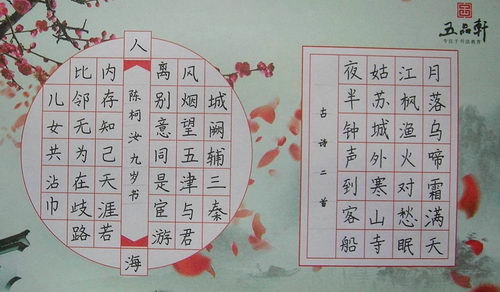 五品軒
专注于书法教育
月落乌啼霜满天
江枫渔火对愁眠
姑苏城外寒山寺
夜半钟声到客船
古诗二首
城阙辅三秦
风烟望五津与君
离别意同是宦游
人
海
内存知己天涯若
比邻无为在歧路
儿女共沾巾
陈柯汝九岁书